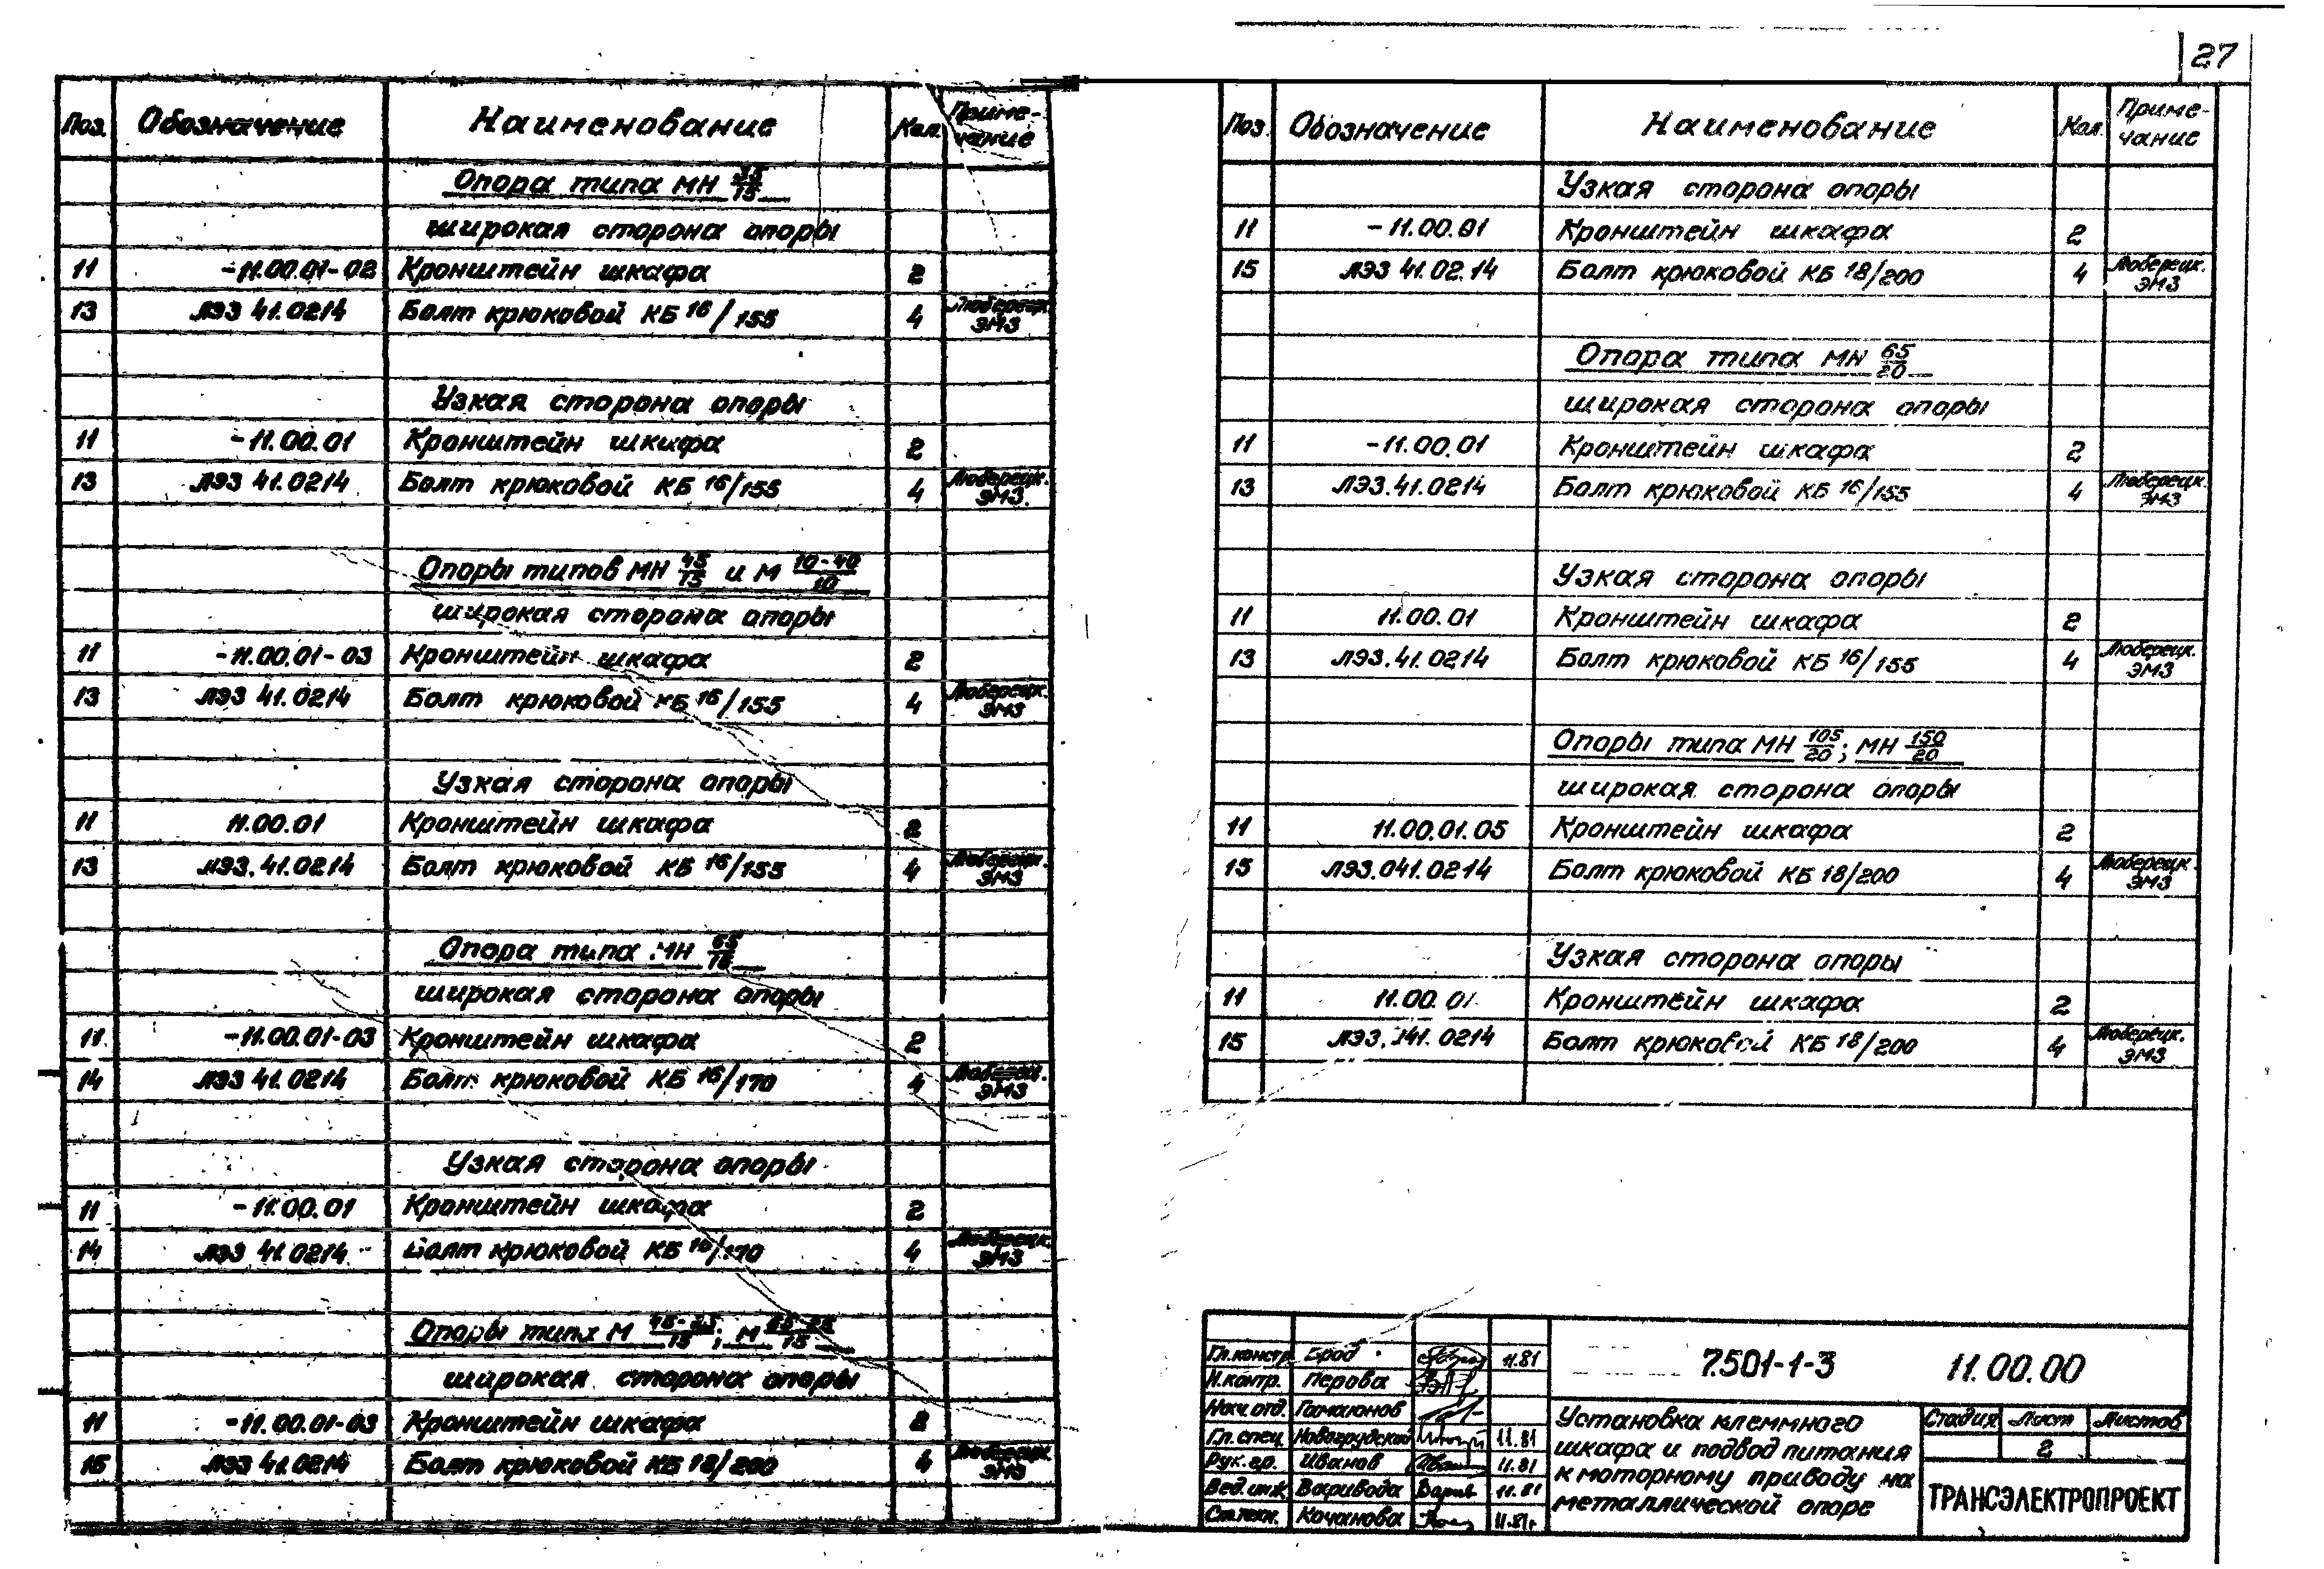 27
Поз. Обозначение Наименование Кол. Приме-
чание
Опора типа МН 35/15
широкая сторона опоры
11 -11.00.01-02 Кронштейн шкафа 2
13 ЛЭЗ 41.0214 Болт крюковой КБ 16/155 4 Люберецк.
ЭМЗ
Узкая сторона опоры
11 -11.00.01 Кронштейн шкафа 2
13 ЛЭЗ 41.0214 Болт крюковой КБ 16/155 4 Люберецк.
ЭМЗ.
Опоры типов МН 45/15 и М 10-40/10
широкая сторона опоры
11 -11.00.01-03 Кронштейн шкафа 2
13 ЛЭЗ 41.0214 Болт крюковой КБ 16/155 4 Люберецк.
ЭМЗ
Узкая сторона опоры
11 11.00.01 Кронштейн шкафа 2
13 ЛЭЗ.41.0214 Болт крюковой КБ 16/155 4 Люберецк.
ЭМЗ
Опора типа МН 65/15
широкая сторона опоры
11 -11.00.01-03 Кронштейн шкафа 2
14 ЛЭЗ 41.0214 Болт крюковой КБ 16/170 4
ЭМЗ
Узкая сторона опоры
11 -11.00.01 Кронштейн шкафа 2
14 ЛЭЗ 41.0214 Болт крюковой КБ 16/170 4 Люберецк.
ЭМЗ
Опоры типа М ; М
широкая сторона опоры
11 -11.00.01-03 Кронштейн шкафа 2
15 ЛЭЗ 41.0214 Болт крюковой КБ 18/200 4 Люберецк.
ЭМЗ
Поз. Обозначение Наименование Кол. Приме-
чание
Узкая сторона опоры
11 -11.00.01 Кронштейн шкафа 2
15 ЛЭЗ 41.02.14 Болт крюковой КБ 18/200 4 Люберецк.
ЭМЗ
Опора типа МН 65/20
широкая сторона опоры
11 -11.00.01 Кронштейн шкафа 2
13 ЛЭЗ.41.0214 Болт крюковой КБ 16/155 4 Люберецк.
ЭМЗ
Узкая сторона опоры
11 11.00.01 Кронштейн шкафа 2
13 ЛЭЗ.41.0214 Болт крюковой КБ 16/155 4 Люберецк.
ЭМЗ
Опоры типа МН 105/20; МН 150/20
широкая сторона опоры
11 11.00.01.05 Кронштейн шкафа 2
15 ЛЭЗ.041.0214 Болт крюковой КБ 18/200 4 Люберецк.
ЭМЗ
Узкая сторона опоры
11 11.00.01 Кронштейн шкафа 2
15 Болт крюковой КБ 18/200 4 Люберецк.
ЭМЗ
Гл.констр. Брод 11.81
Н.контр. Перова
Нач.отд. Гамаюнов
Гл.спец. Новогрудской 11.81
Рук.гр. Иванов 11.81
Вед.инж. Варивода 11.81
Ст.техн. Кочанова 11.81г
7.501-1-3 11.00.00
Установка клеммного
шкафа и подвод питания
к моторному приводу на
металлической опоре
Стадия Лист Листов
2
ТРАНСЭЛЕКТРОПРОЕКТ